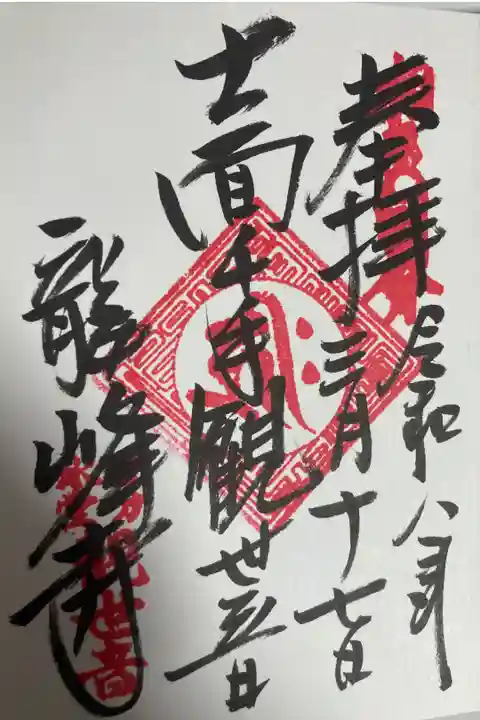 奉拝
令和八年
三月十七日
十一面千手觀世音
龍峰寺